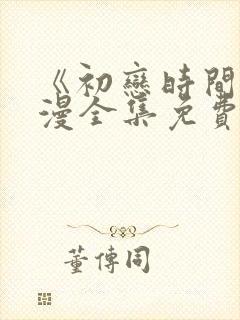 《初戀時間
漫全集免費
董傳同